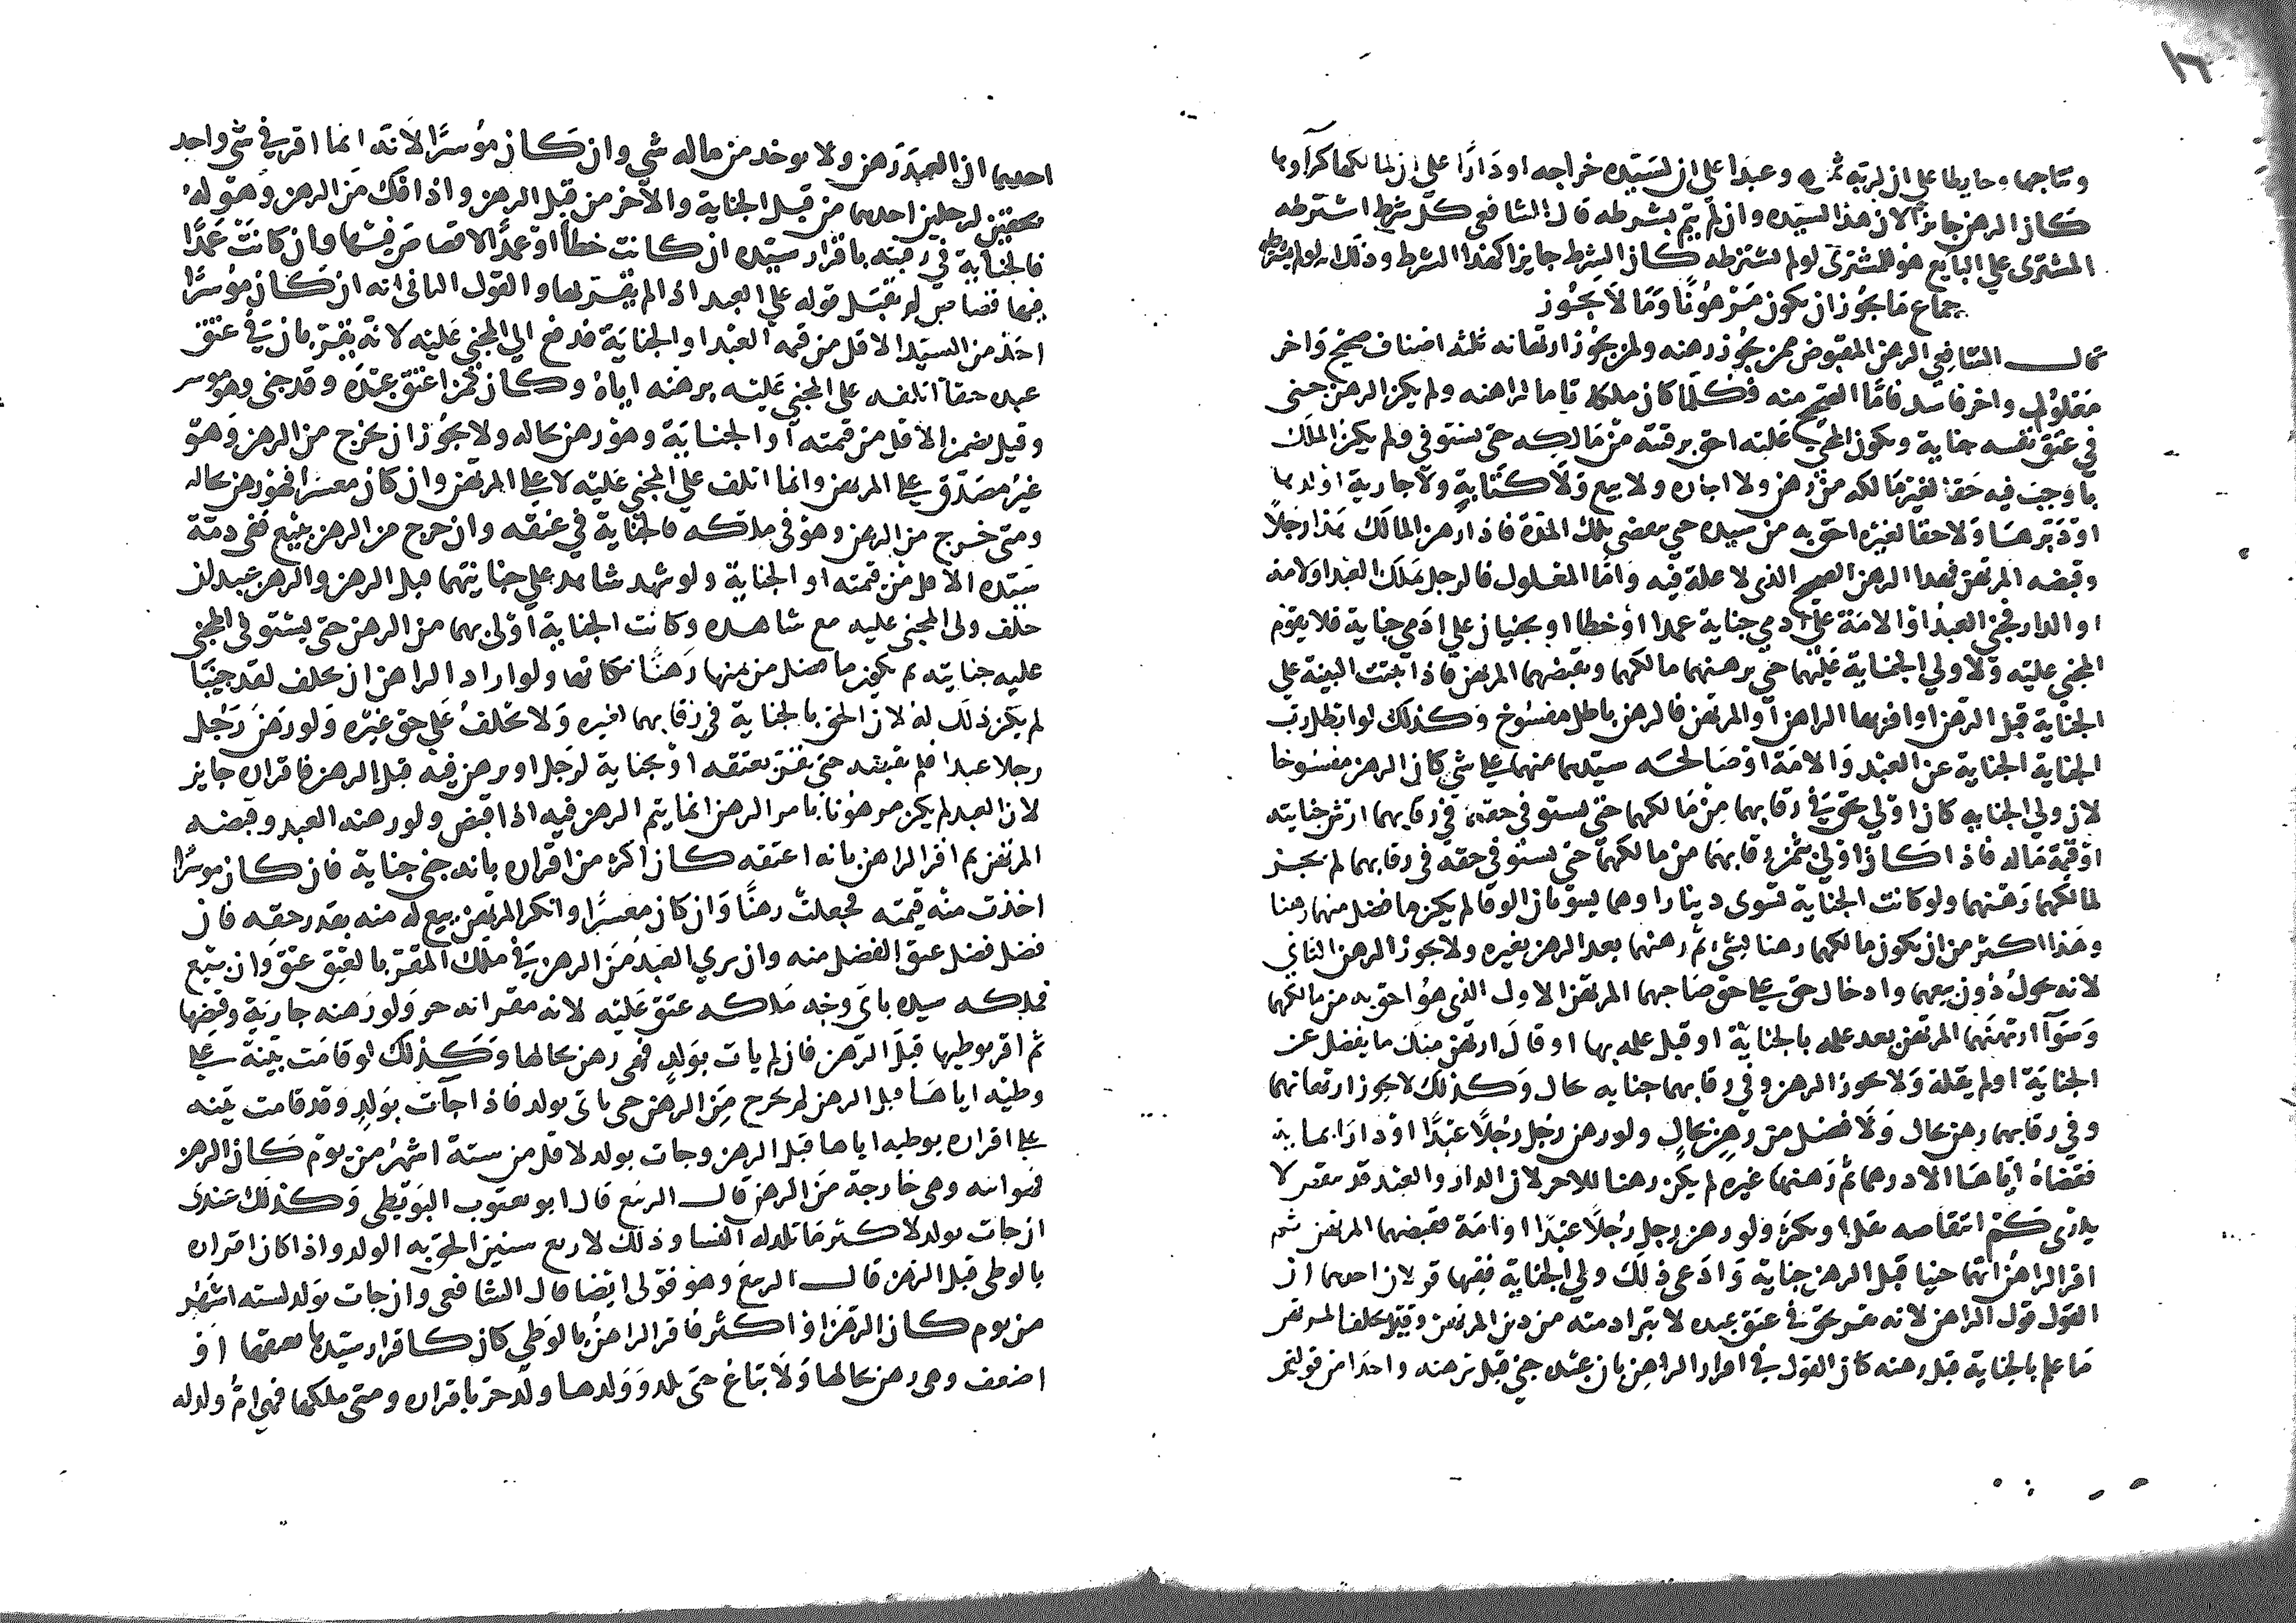 ١٦
ونتاجها وحايطا علي ان لربه ثمره وعبدا علي ان لسيده خراجه او دارا علي ان لمالكها كراوها
كان الرهن جايزا لان هذا لسيده وان لم يتم بشرطه قال الشافعي كل شرط اشترطه
المشتري علي البايع هو للمشتري لو لم يشترطه كان الشرط جايزا كهذا الشرط وذلك انه لو لم يشترطه
جماع ما يجوز ان يكون مرهونا وما لا يجوز
قال الشافعي الرهن المقبوض ممن يجوز رهنه ولمن يجوز ارتهانه ثلثه اصناف صحيح واخر
معلول واخر فاسد فاما الصحيح منه فكلما كان ملكه تاما لراهنه ولم يكن الرهن جني
في عنق نفسه جناية ويكون المجني عليه احق برقبته من مالكه حتي يستوفي ولم يكن الملك
اوجب فيه حقا لغير مالكه من رهن ولا اجاره ولا بيع ولا كتابة ولا جارية اولدها
او دبرها ولا حقا لغيره احق به من سيده حي تنقضي تلك المدة فاذا رهن المالك هذا رجلا
وقبضه المرتهن فهذا الرهن الصحيح الذي لا علة فيه واما المعلول فالرجل يملك العبد او الامه
او الدار فيجني العبد او الامة علي ادمي جناية عمدا او خطا او يجنيان علي ادمي جناية فلا يقوم
المجني عليه ولا ولي الجناية عليهما حتي يرهنهما مالكهما ويقبضهما المرتهن فاذا ثبتت البينة علي
الجناية قبل الرهن او اقر بها الراهن والمرتهن فالرهن باطل مفسوخ وكذلك لو ابطل رب
الجناية الجناية عن العبد والامة او صالحه سيدهما منهما علي شي كان الرهن مفسوخا
لان ولي الجنايه كان اولي بحق في رقابهما من مالكهما حتي يستوفي حقه في رقابهما ارش جنايته
او قيمة ماله فاذا كان اولي بثمن رقابهما من مالكهما حتي يستوفي حقه في رقابهما لم يجز
لمالكهما رهنهما ولو كانت الجناية تسوي دينارا وهما يسويان الوفا لم يكن ما فضل منهما رهنا
وهذا اكثر من ان يكون مالكهما رهنا لشي ثم رهنهما بعد الرهن بغيره ولا يجوز الرهن الثاني
لانه يحول دون بيعهما وادخال حق علي حق صاحبهما المرتهن الاول الذي هو احق به من مالكهما
وسوآ ارتهنهما المرتهن بعد علمه بالجناية او قبل علمه بها او قال ارتهن منك ما يفضل عن
الجناية او لم يقله ولا يجوز الرهن وفي رقابهما جنايه بحال وكذلك لا يجوز ارتهانهما
وفي رقابهما رهن بحال ولا فضل من رهن بحال ولو رهن رجل رجلا عبدا او دارا بمايه
فقضاه اياها الا درهما ثم رهنهما غيره لم يكن رهنا للاخر لان الدار والعبد قد ينقص لا
يدري كم انتقاصه يقل او يكثر ولو رهن رجل رجلا عبدا او امة فقبضهما المرتهن ثم
اقر الراهن انهما جنيا قبل الرهن جناية وادعي ذلك ولي الجناية ففيها قولان احدهما ان
القول قول الراهن لانه يقر بحق في عنق عبده لا تبرا ذمته من دين المرتهن وقيل يحلف المرتهن
ما علم بالجناية قبل رهنه كان القول في اقرار الراهن بان عبده جني قبل يرهنه واحدا من قولين
احدهما ان العبد رهن ولا يوخذ من ماله شي وان كان موسرا لانه انما اقر في شي واحد
بحقين لرجلين احدهما من قبل الجناية والآخر من قبل الرهن واذا فك من الرهن وهو له
فالجناية في رقبته باقرار سيده ان كانت خطا او عمدا لا قصاص فيها وان كانت عمدا
فيها قصاص لم يقبل قوله علي العبد اذا لم يقر بها والقول الثاني انه ان كان موسرا
اخذ من السيد الاقل من قيمة العبد او الجناية فدفع الي المجني عليه لانه يقر بان في عنق
عبده حقا اتلفه علي المجني عليه برهنه اياه وكان كمن اعتق عبده وقد جني وهو موسر
وقيل يضمن الاقل من قيمته او الجناية وهو رهن بحاله ولا يجوز ان يخرج من الرهن وهو
غير مصدق علي المرتهن وانما اتلف علي المجني عليه لا علي المرتهن وان كان معسرا فهو رهن بحاله
ومتي خرج من الرهن وهو في ملكه فالجناية في عنقه وان خرج من الرهن ببيع ففي ذمة
سيده الاقل من قيمته او الجناية ولو شهد شاهد علي جنايتهما قبل الرهن والرهن عبدان
حلف ولي المجني عليه مع شاهده وكانت الجناية اولي بهما من الرهن حتي يستوفي المجني
عليه جنايته ثم يكون ما فضل من ثمنها رهنا مكانها ولو اراد الراهن ان يحلف لقد جنيا
لم يكن ذلك له لان الحق بالجناية في رقابهما لغيره ولا يحلف علي حق غيره ولو رهن رجل
رجلا عبدا فلم يقبضه حتي يقر بعتقه او بجناية لرجل او برهن فيه قبل الرهن فاقراره جايز
لان العبد لم يكن مرهونا بامر الرهن انما يتم الرهن فيه اذا قبض ولو رهنه العبد وقبضه
المرتهن ثم اقر الراهن بانه اعتقه كان اكثر من اقراره بانه جني جناية فان كان موسرا
اخذت منه قيمته فجعلت رهنا وان كان معسرا وانكر المرتهن بيع له منه بقدر حقه فان
فضل فضل عتق الفضل منه وان بري العبد من الرهن في ملك المقر بالعتق عتق وان بيع
فملكه سيده باي وجه ملكه عتق عليه لانه مقر انه حر ولو رهنه جارية وقبضها
ثم اقر بوطيها قبل الرهن فان لم يات بولد فهي رهن بحالها وكذلك لو قامت بينة علي
وطيه اياها قبل الرهن لم يخرج من الرهن حي ياتي بولد فاذا جآت بولد وقد قامت بينه
علي اقراره بوطيه اياها قبل الرهن وجات بولد لاقل من ستة اشهر من يوم كان الرهن
فهو ابنه وهي خارجة من الرهن قال الربيع قال ابو يعقوب البويطي وكذلك عندي
ان جات بولد لاكثر ما تلد له النسا وذلك لاربع سنين الحق به الولد واذا كان اقراره
بالوطي قبل الرهن قال الربيع وهو قولي ايضا قال الشافعي وان جات بولد لسته اشهر
من يوم كان الرهن او اكثر فاقر الراهن بالوطي كان كاقرار سيدها بعتقها او
اضعف وهي رهن بحالها ولا تباع حتي تلد وولدها ولد حر باقراره ومتي ملكها فهي ام ولد له